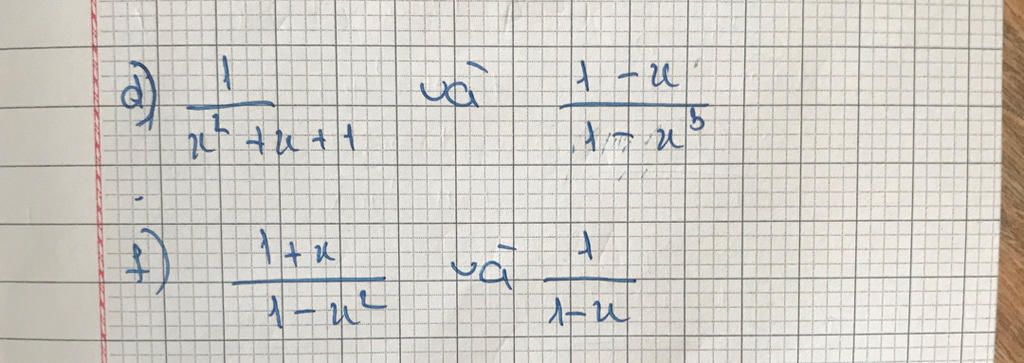 d) 1/(x² + x + 1) và (1 - x)/(1 - x³)
f) (1 + x)/(1 - x²) và 1/(1 - x)